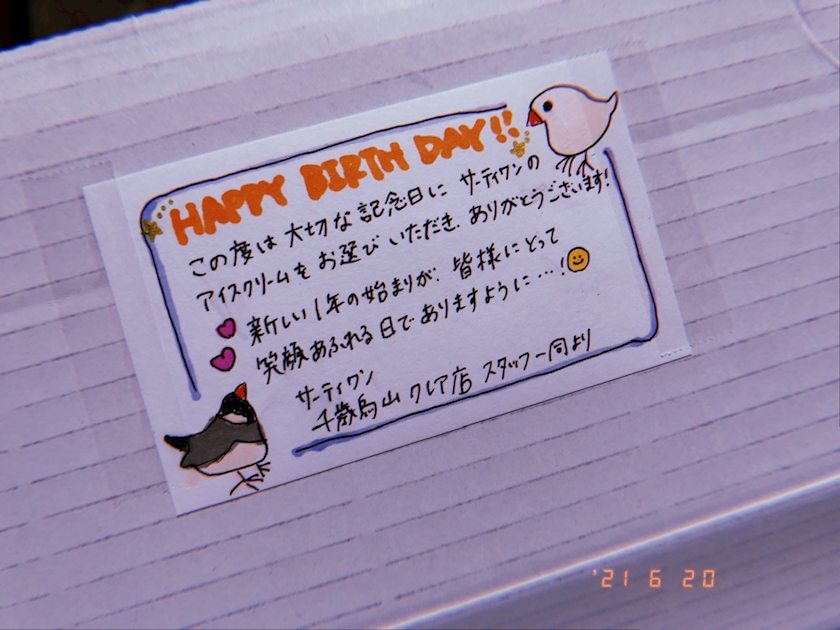 HAPPY BIRTH DAY!!
この度は大切な記念日に サーティワンの
アイスクリームをお選びいただき、ありがとうございます!
新しい1年の始まりが、皆様にとって
笑顔あふれる日でありますように…!
サーティワン
千歳烏山クレア店 スタッフ一同より
'21 6 20